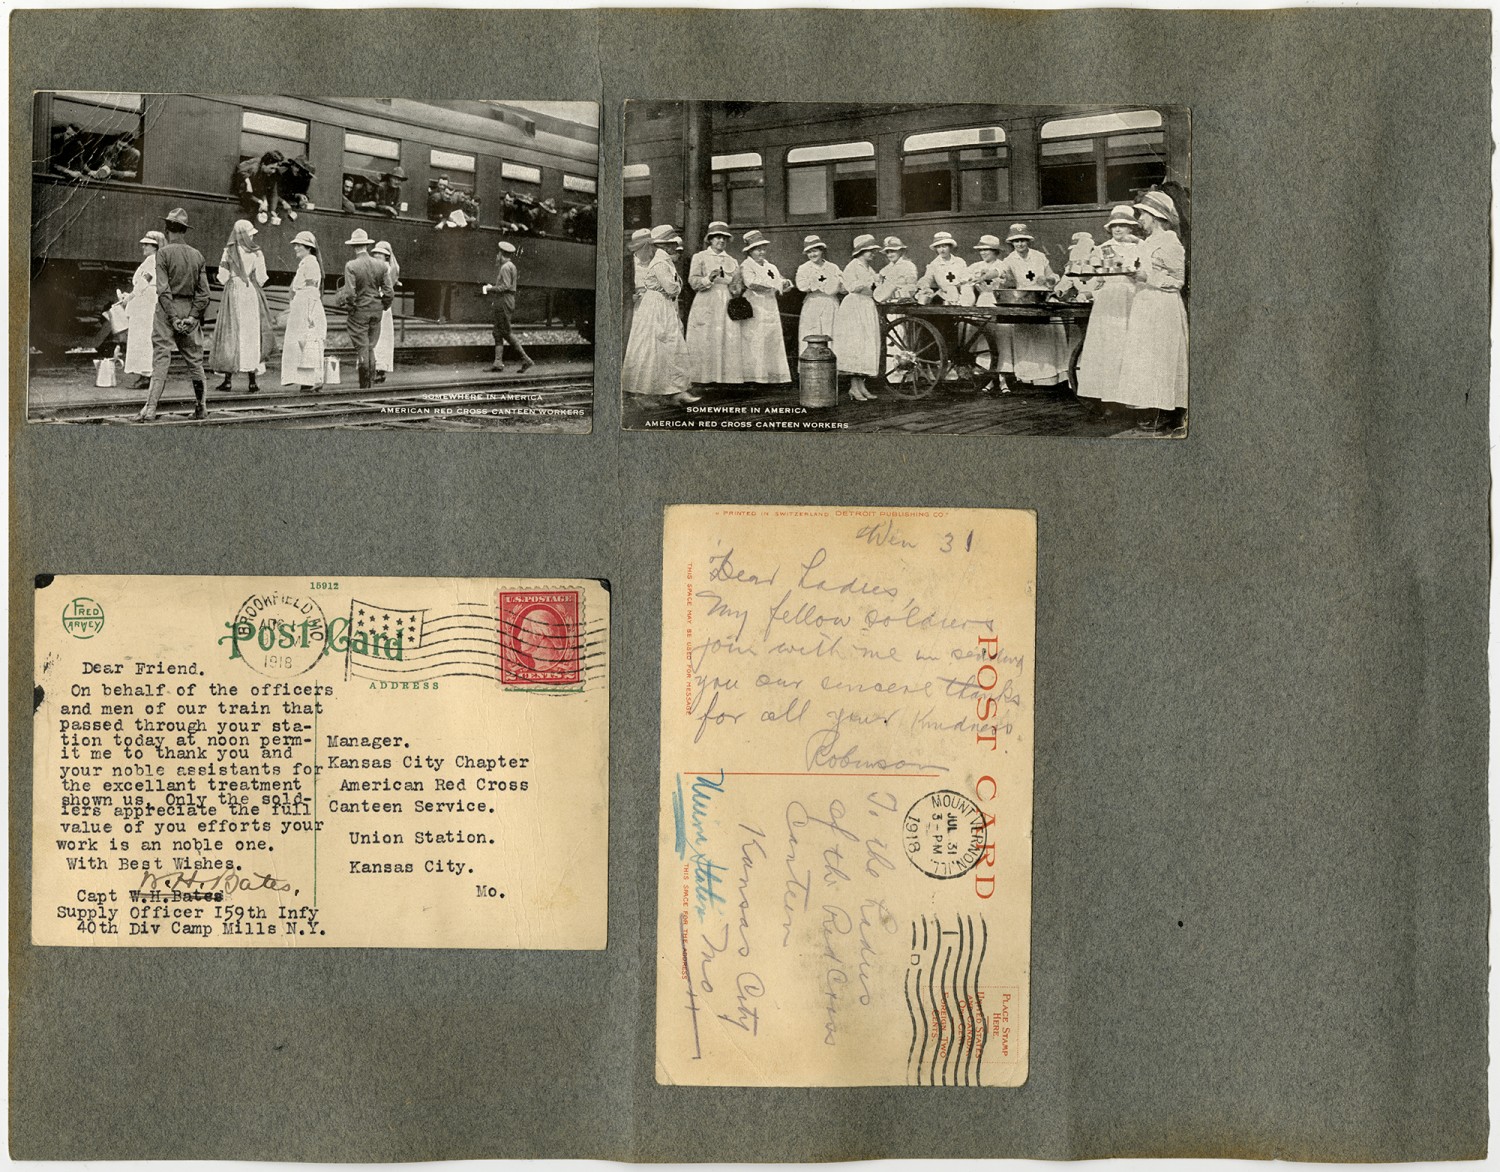 SOMEWHERE IN AMERICA
AMERICAN RED CROSS CANTEEN WORKERS
SOMEWHERE IN AMERICA
AMERICAN RED CROSS CANTEEN WORKERS
15912
FRED
HARVEY
BROOKFIELD MO.
1918
Post Card
ADDRESS
U.S. POSTAGE
2 CENTS 2
Dear Friend.
On behalf of the officers
and men of our train that
passed through your sta-
tion today at noon perm-
it me to thank you and
your noble assistants for
the excellant treatment
shown us. Only the sold-
iers appreciate the full
value of you efforts your
work is an noble one.
With Best Wishes.
W.H. Bates.
Capt W.H.Bates
Supply Officer I59th Infy
40th Div Camp Mills N.Y.
Manager.
Kansas City Chapter
American Red Cross
Canteen Service.
Union Station.
Kansas City.
Mo.
PRINTED IN SWITZERLAND. DETROIT PUBLISHING CO.
31
Dear Ladies
My fellow soldiers
join with me in sending
you our sincere thanks
for all your kindness.
Robinson
THIS SPACE MAY BE USED FOR MESSAGE
POST CARD
MOUNT VERNON, ILL.
JUL 31
3-PM
1918
To the Ladies
of the Red Cross
Canteen
Kansas City
Union Station Mo
THIS SPACE FOR THE ADDRESS
PLACE STAMP
HERE
UNITED STATES
AND CANADA
ONE CENT
FOREIGN TWO
CENTS.